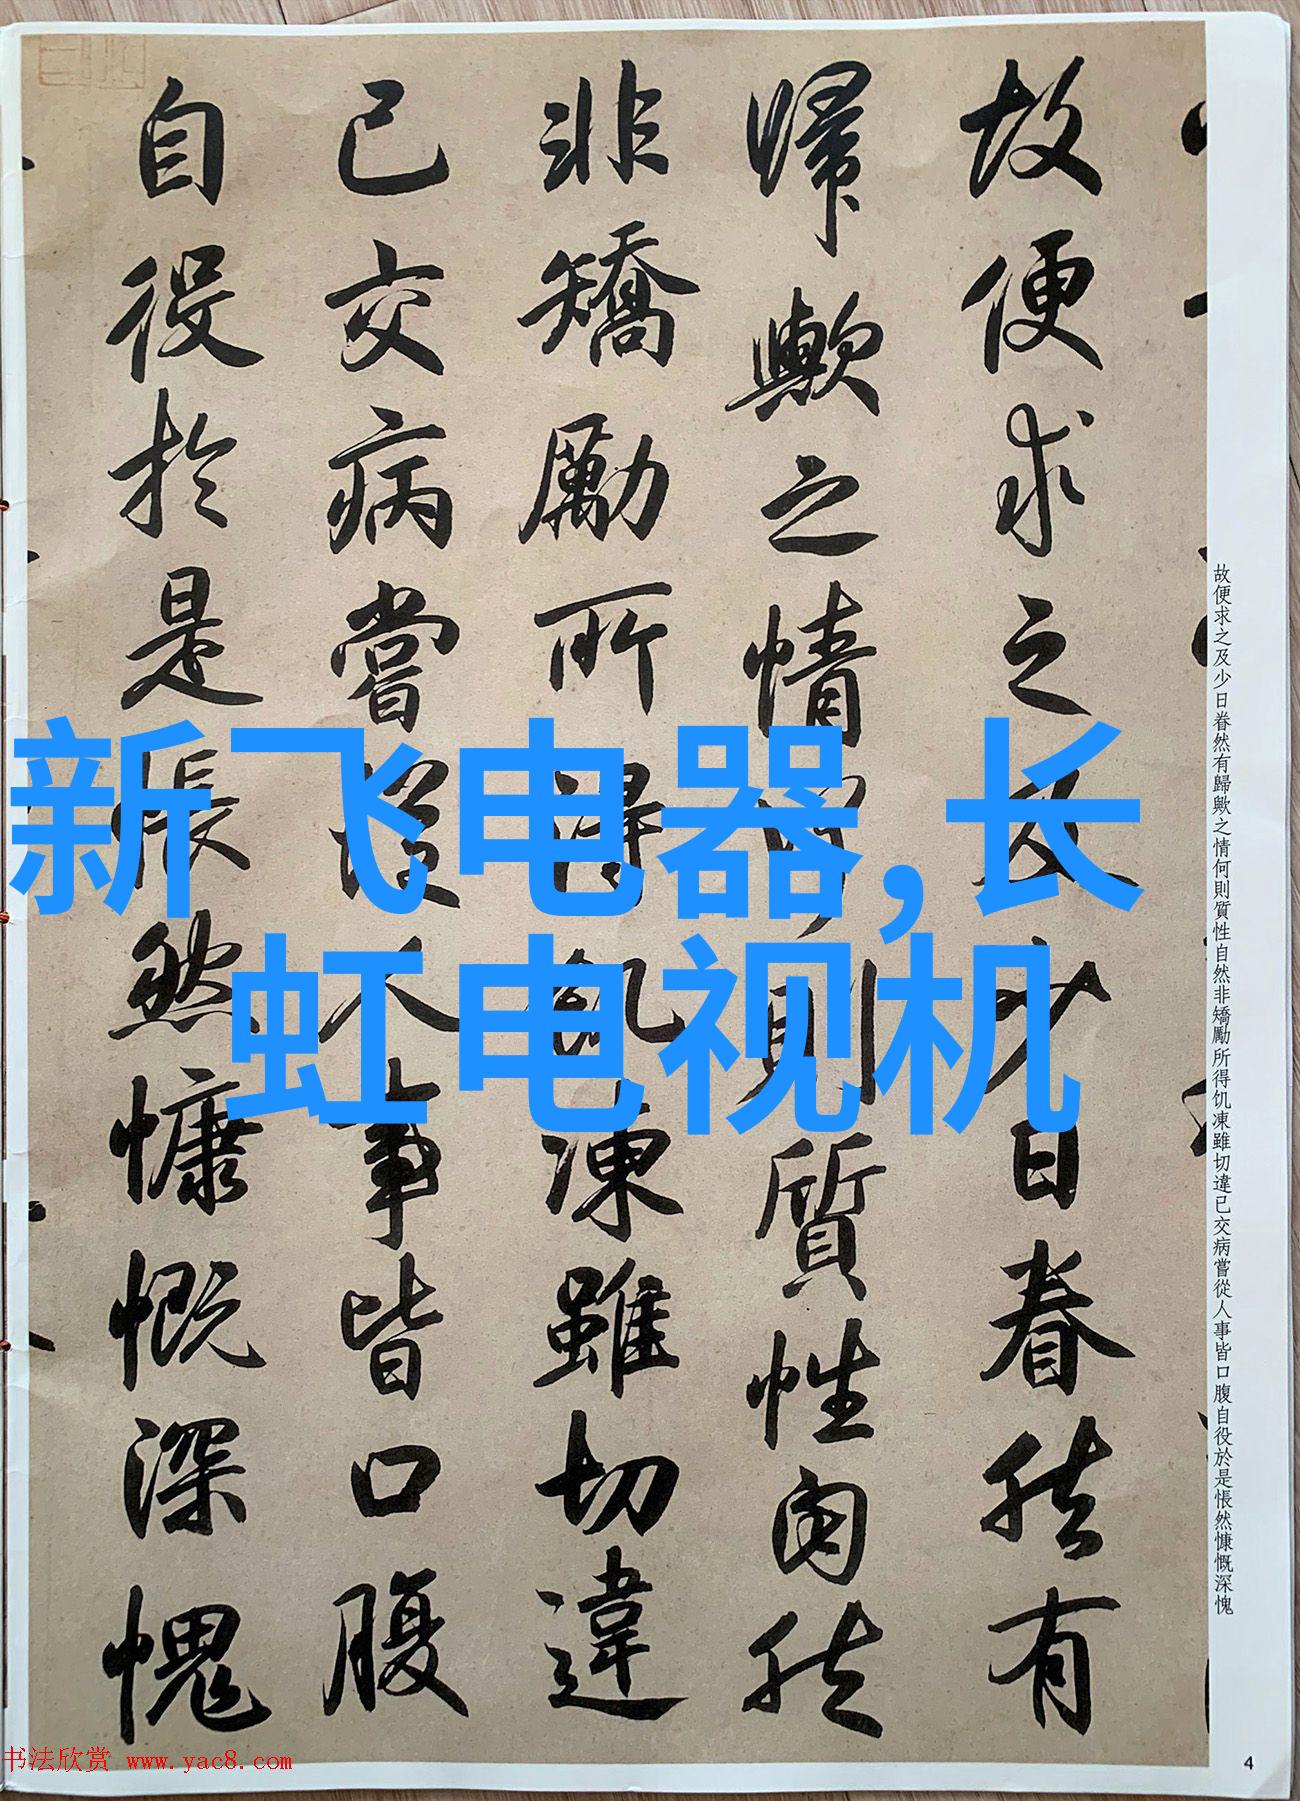 故便求之及少日眷然有
歸歟之情何則質性自然
非矯勵所得飢凍雖切違
已交病嘗從人事皆口腹
自役於是悵然慷慨深愧
新飞电器,长
虹电视机
故便求之及少日眷然有歸歟之情何則質性自然非矯勵所得饥凍雖切違已交病嘗從人事皆口腹自役於是悵然慷慨深愧
4
书法欣赏 www.yac8.com